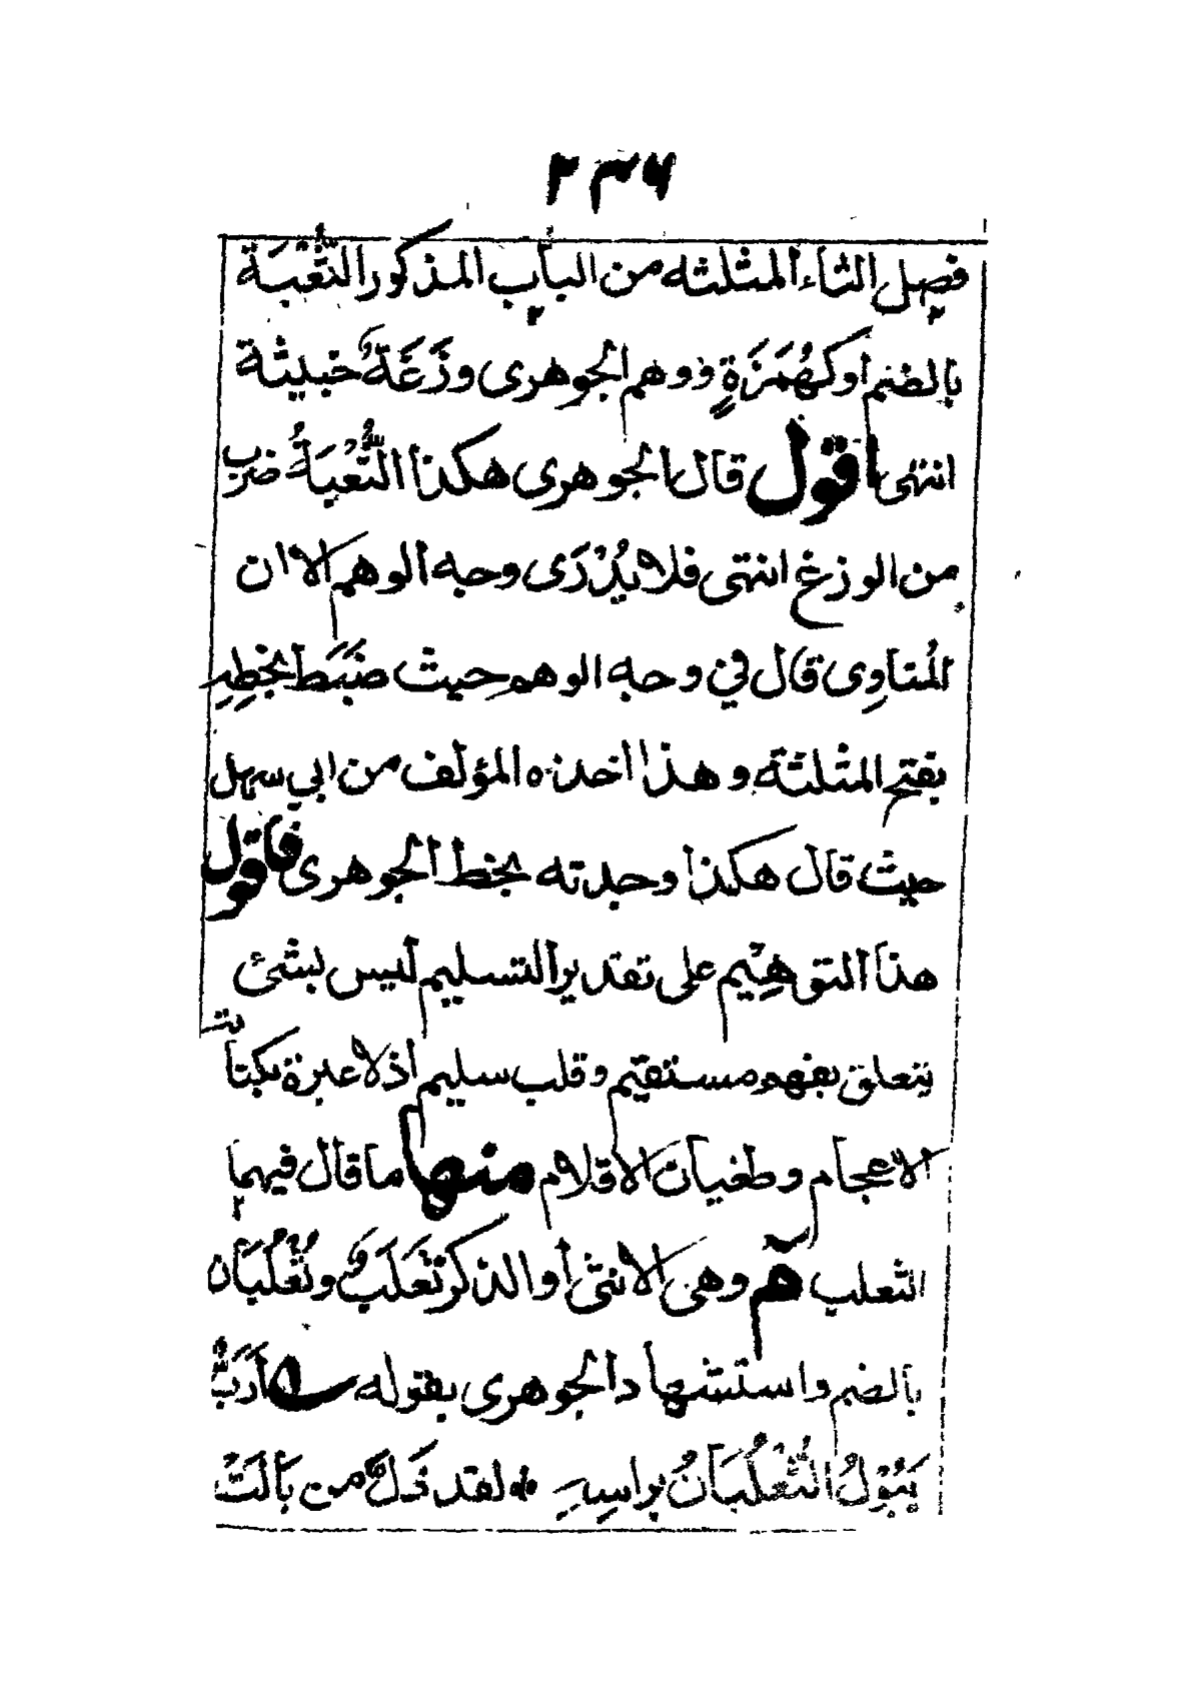 ٢٣٦
فصل الثاء المثلثه من الباب المذكور الثُّعْبَة
بالضم أو كهُمَزَةٍ ووهم الجوهرى وَزَغَةٌ خبيثة
انتهى اقول قال الجوهرى هكذا الثُّعْبَةُ ضرب
من الوزغ انتهى فلا يُدْرَى وجه الوهم الا ان
المُناوِى قال في وجه الوهم حيث ضَبَطَ بخطِهِ
بفتح المثلثة وهذا اخذه المؤلف من ابي سهل
حيث قال هكذا وجدته بخط الجوهرى فاقول
هذا التوهِيْم على تقدير التسليم ليس بشئ
يتعلق بفهم مستقيم وقلب سليم اذ لا عبرة بكتابة
الاعجام وطغيان الاقلام منها ما قال فيهما
الثعلب م وهى الانثى أو الذكر ثَعْلَبٌ وثُعْلُبَان
بالضم واستشهاد الجوهرى بقوله أَرَبٌّ
يَبُوْلُ الثُّعْلُبَانُ براسِهِ لقد ذَلَّ من بَالَتْ